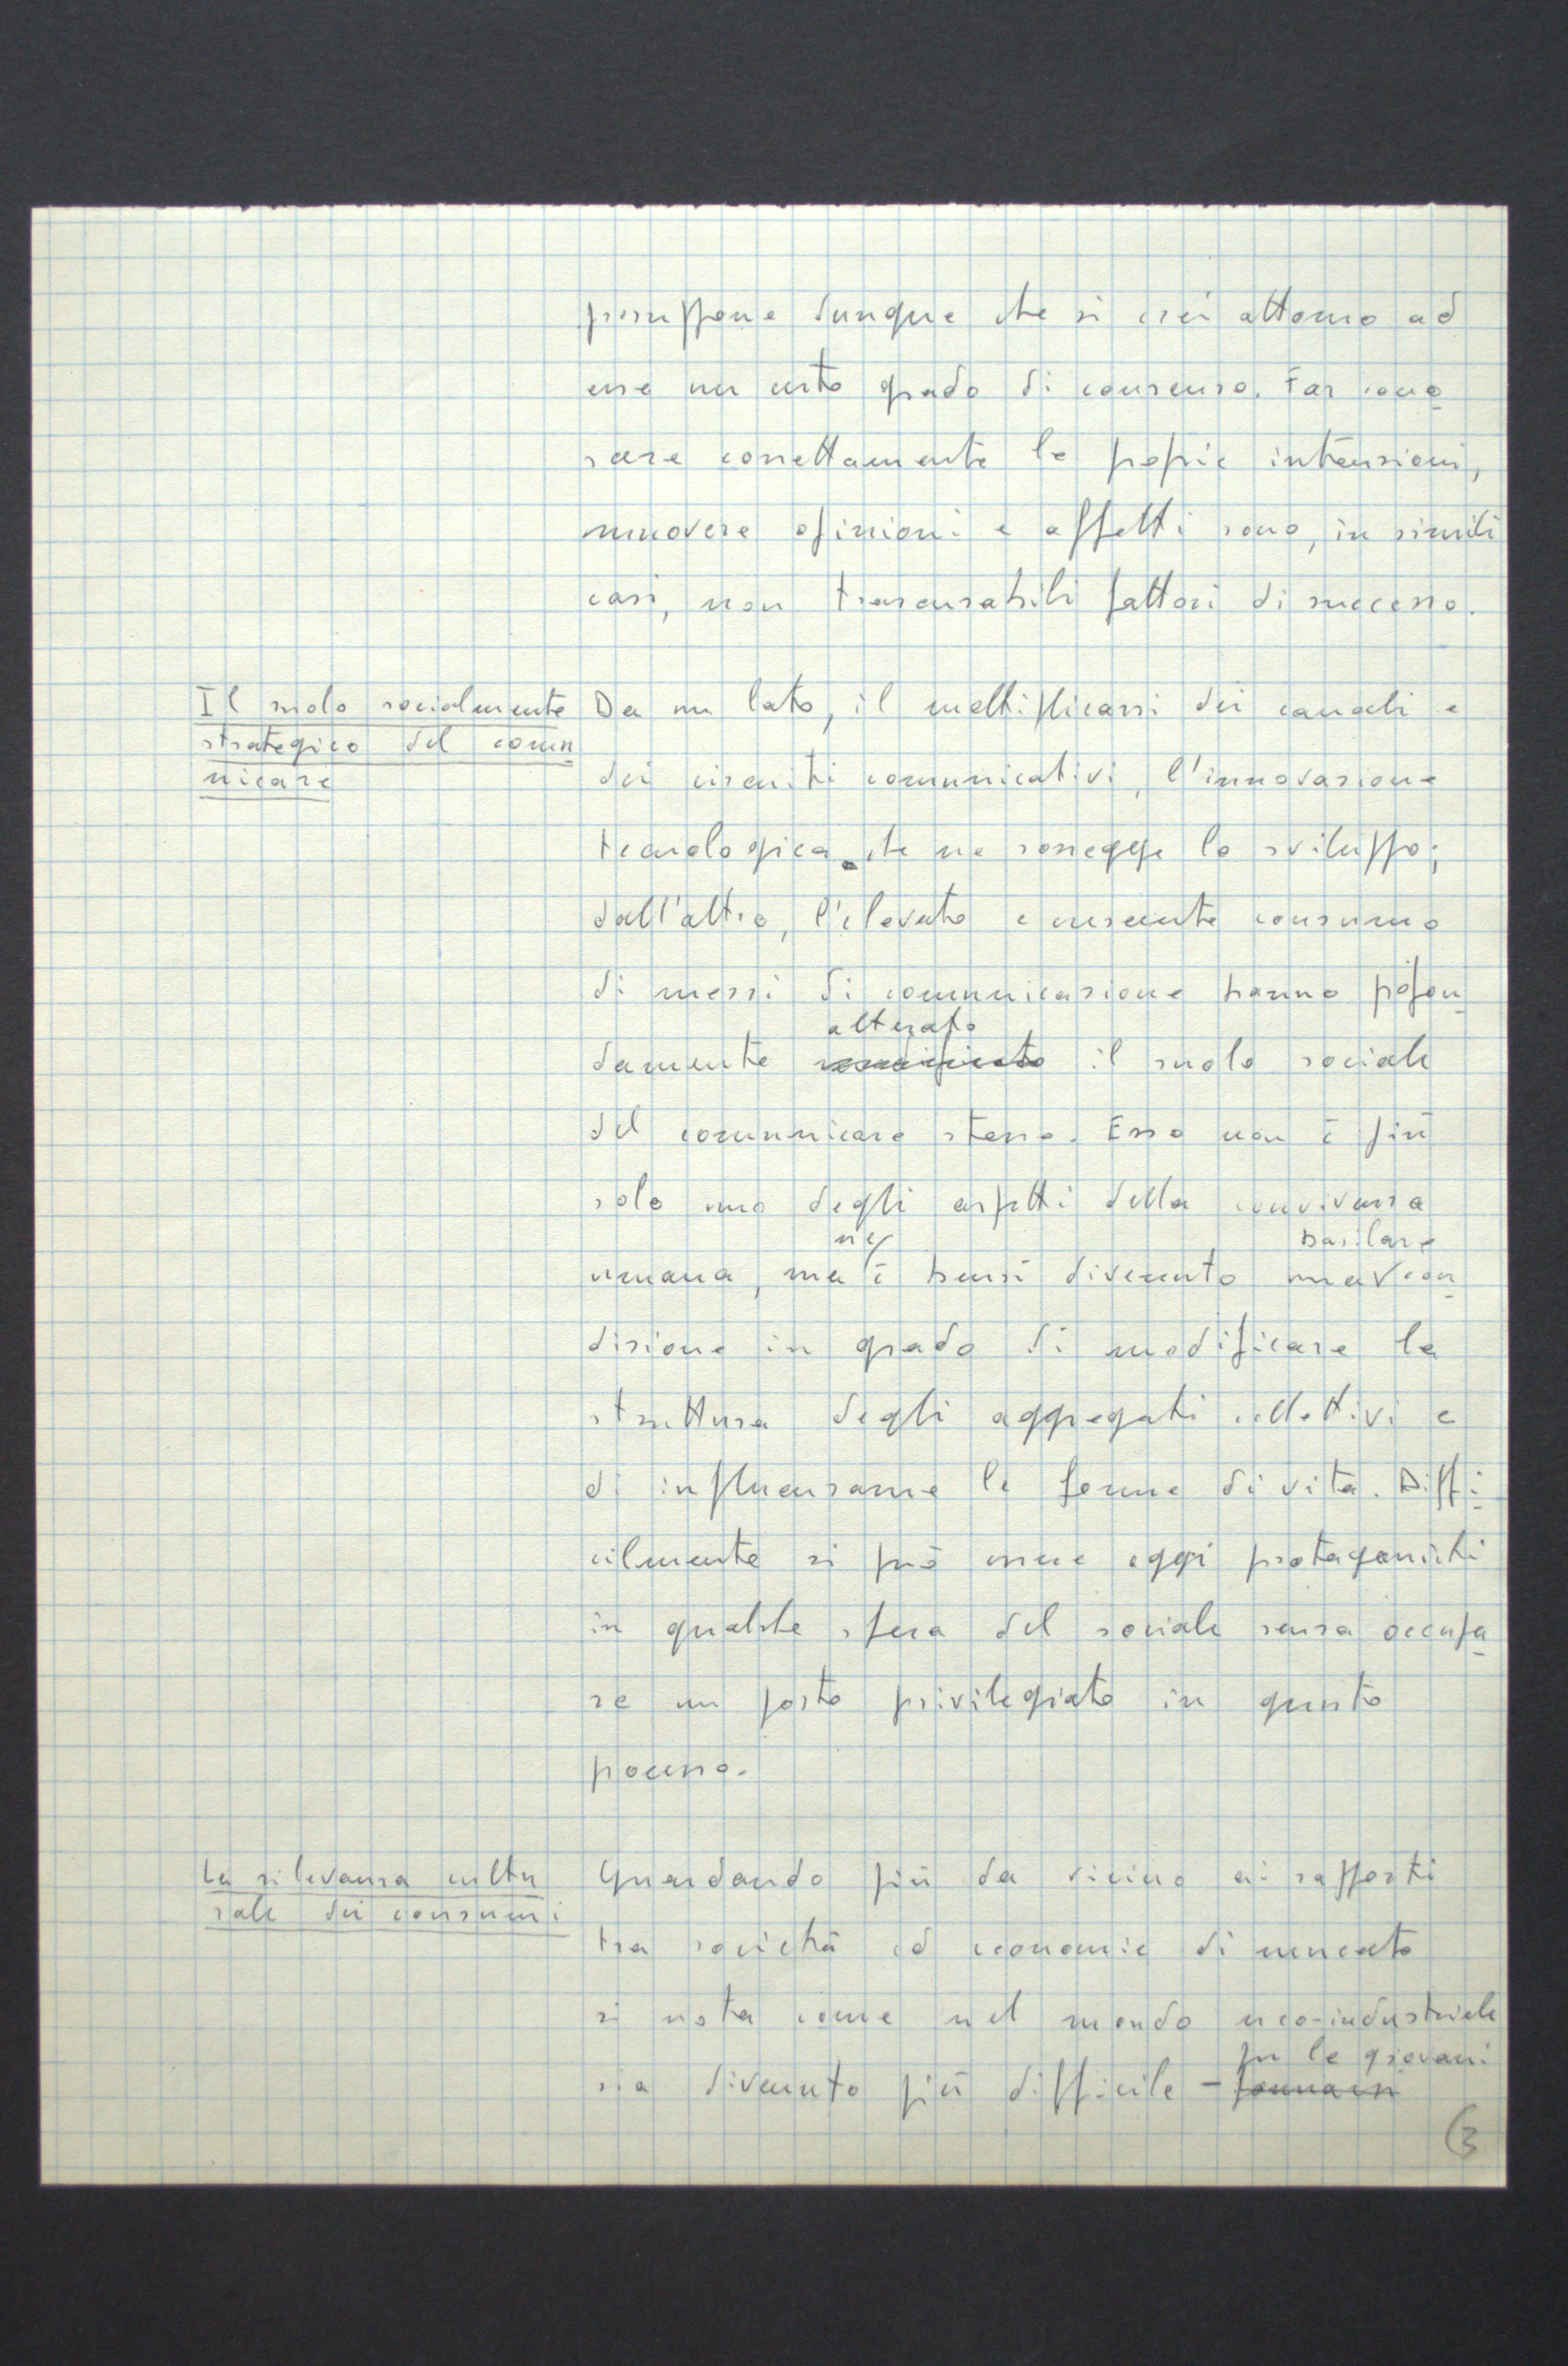 presuppone dunque che si crei attorno ad
esse un certo grado di consenso. Far cono
scere correttamente le proprie intenzioni,
muovere opinioni e affetti sono, in simili
casi, non trascurabili fattori di successo.
Il ruolo socialmente
strategico del comu
nicare
Da un lato, il moltiplicarsi dei canali e
dei circuiti comunicativi, l'innovazione
tecnologica che ne sorregge lo sviluppo;
dall'altro, l'elevato e crescente consumo
di mezzi di comunicazione hanno profon
alterato
damente modificato il ruolo sociale
del comunicare stesso. Esso non è più
solo uno degli aspetti della convivenza
ne basilare
umana, ma è bensì divenuto una con
dizione in grado di modificare la
struttura degli aggregati collettivi e
di influenzarne le forme di vita. Diffi
cilmente si può essere oggi protagonisti
in qualche sfera del sociale senza occupa
re un posto privilegiato in questo
processo.
La rilevanza cultu
rale dei consumi
Guardando più da vicino ai rapporti
tra società ed economie di mercato
si nota come nel mondo neo-industriale
per le giovani
sia divenuto più difficile - formarsi
3